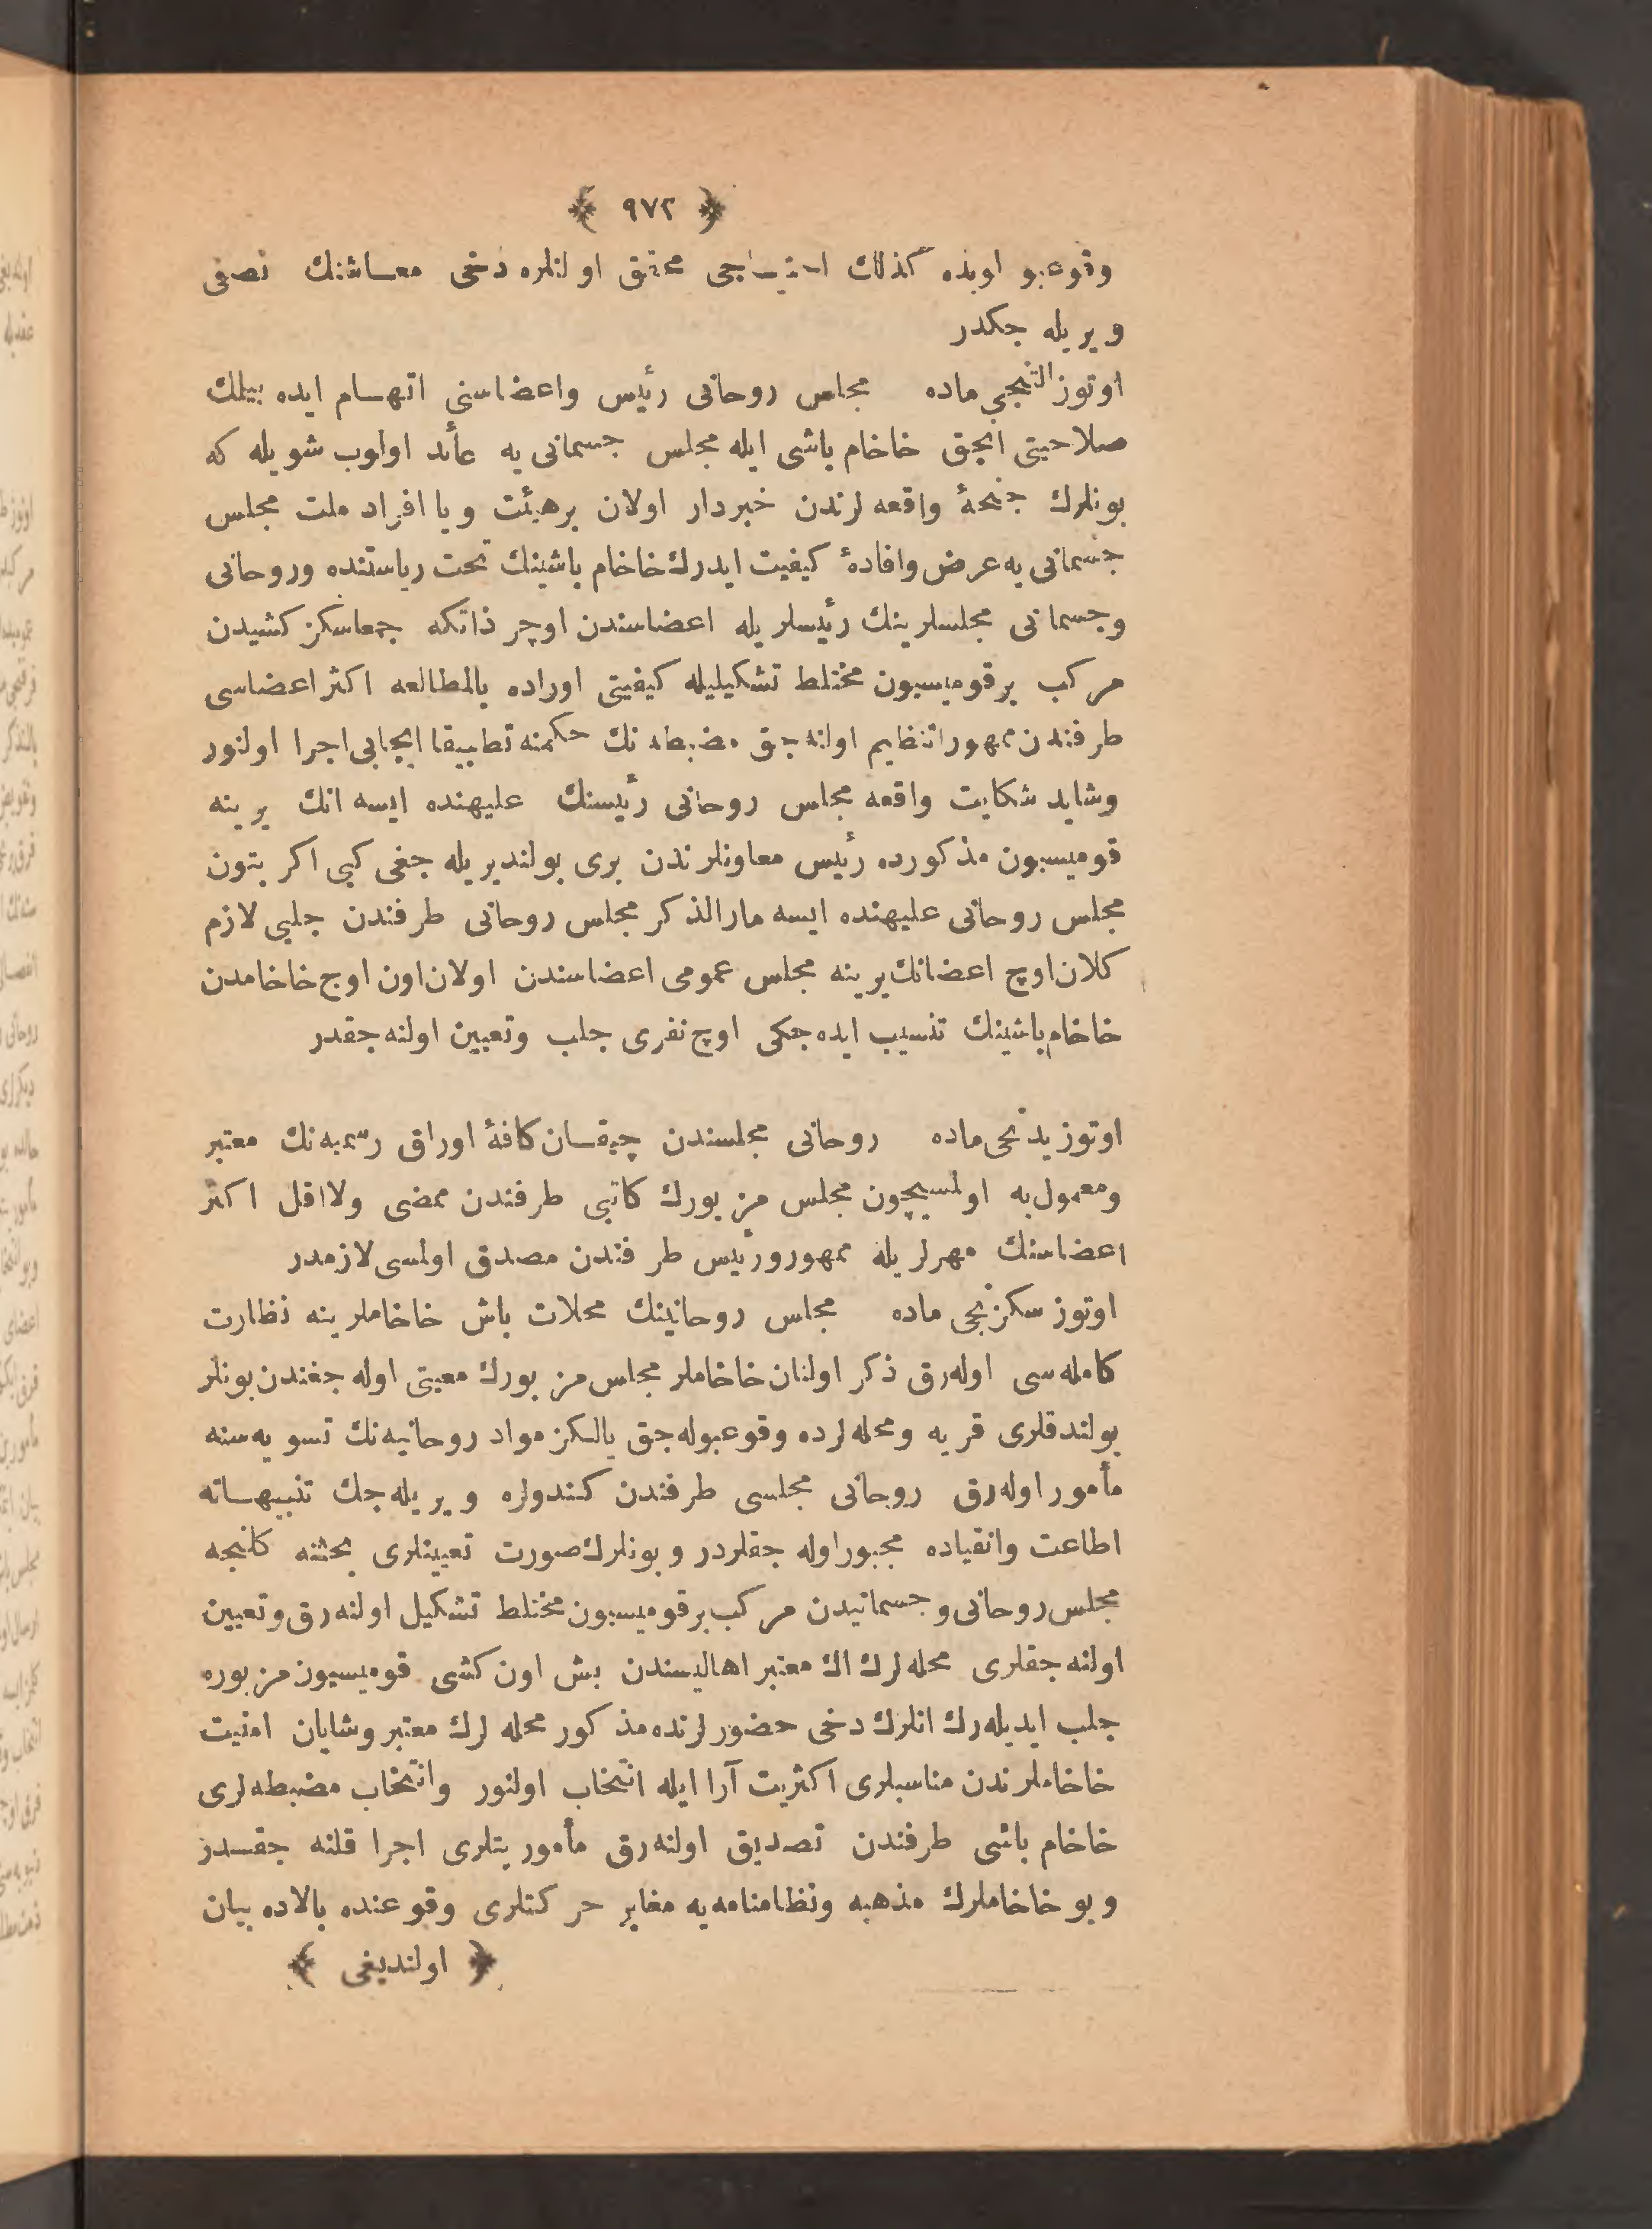 ﴿ ٩٧٢ ﴾
وقوعبو اوبده كذلك احتياجى محقق اولنلره دخى معاشنك نصفى
ويريله جكدر
اوتوز التنجى ماده مجلس روحانى رئيس واعضاسنى اتهام ايده بيلك
صلاحيتى انجق خاخام باشى ايله مجلس جسمانى يه عأد اولوب شويله كه
بونلرك جنحهٔ واقعه لرندن خبردار اولان برهيئت ويا افراد ملت مجلس
جسمانى يه عرض وافادهٔ كيفيت ايدرك خاخام باشينك تحت رياستنده وروحانى
وجسمانى مجلسلرينك رئيسلريله اعضاسندن اوچر ذاتكه جمعاسكز كشيدن
مركب بر قوميسيون مختلط تشكيليله كيفيتى اوراده بالمطالعه اكثر اعضاسى
طرفندن ممهورا تنظيم اولنه جق مضبطه نك حكمنه تطبيقا ايجابى اجرا اولنور
وشايد شكايت واقعه مجلس روحانى رئيسنك عليهنده ايسه انك يرينه
قوميسيون مذكورده رئيس معاونلرندن برى بولنديريله جغى كبى اكر بتون
مجلس روحانى عليهنده ايسه مارالذكر مجلس روحانى طرفندن جلبى لازم
كلان اوچ اعضانك يرينه مجلس عمومى اعضاسندن اولان اون اوج خاخامدن
خاخام باشينك تنسيب ايده جكى اوچ نفرى جلب وتعيين اولنه جقدر
اوتوز يدنجى ماده روحانى مجلسندن چيقان كافهٔ اوراق رسميه نك معتبر
ومعمول به اولمسيچون مجلس مزبورك كاتبى طرفندن ممضى ولااقل اكثر
اعضاسنك مهرلريله ممهور ورئيس طرفندن مصدق اولمسى لازمدر
اوتوز سكزنجى ماده مجلس روحانينك محلات باش خاخاملرينه نظارت
كامله سى اوله رق ذكر اولنان خاخاملر مجلس مزبورك معيتى اوله جغندن بونلر
بولندقلرى قريه ومحله لرده وقوعبوله جق يالكز مواد روحانيه نك تسويه سنه
مأمور اوله رق روحانى مجلسى طرفندن كندولره ويريله جك تنبيهاته
اطاعت وانقياده مجبور اوله جقلردر وبونلرك صورت تعيينلرى بحثنه كلنجه
مجلس روحانى وجسمانيدن مركب بر قوميسيون مختلط تشكيل اولنه رق وتعيين
اولنه جقلرى محله لرك اك معتبر اهاليسندن بش اون كشى قوميسيون مزبوره
جلب ايديله رك انلرك دخى حضورلرنده مذكور محله لرك معتبر وشايان امنيت
خاخاملرندن مناسبلرى اكثريت آرا ايله انتخاب اولنور وانتخاب مضبطه لرى
خاخام باشى طرفندن تصديق اولنه رق مأموريتلرى اجرا قلنه جقدر
وبو خاخاملرك مذهبه ونظامنامه يه مغاير حركتلرى وقوعنده بالاده بيان
﴿ اولنديغى ﴾